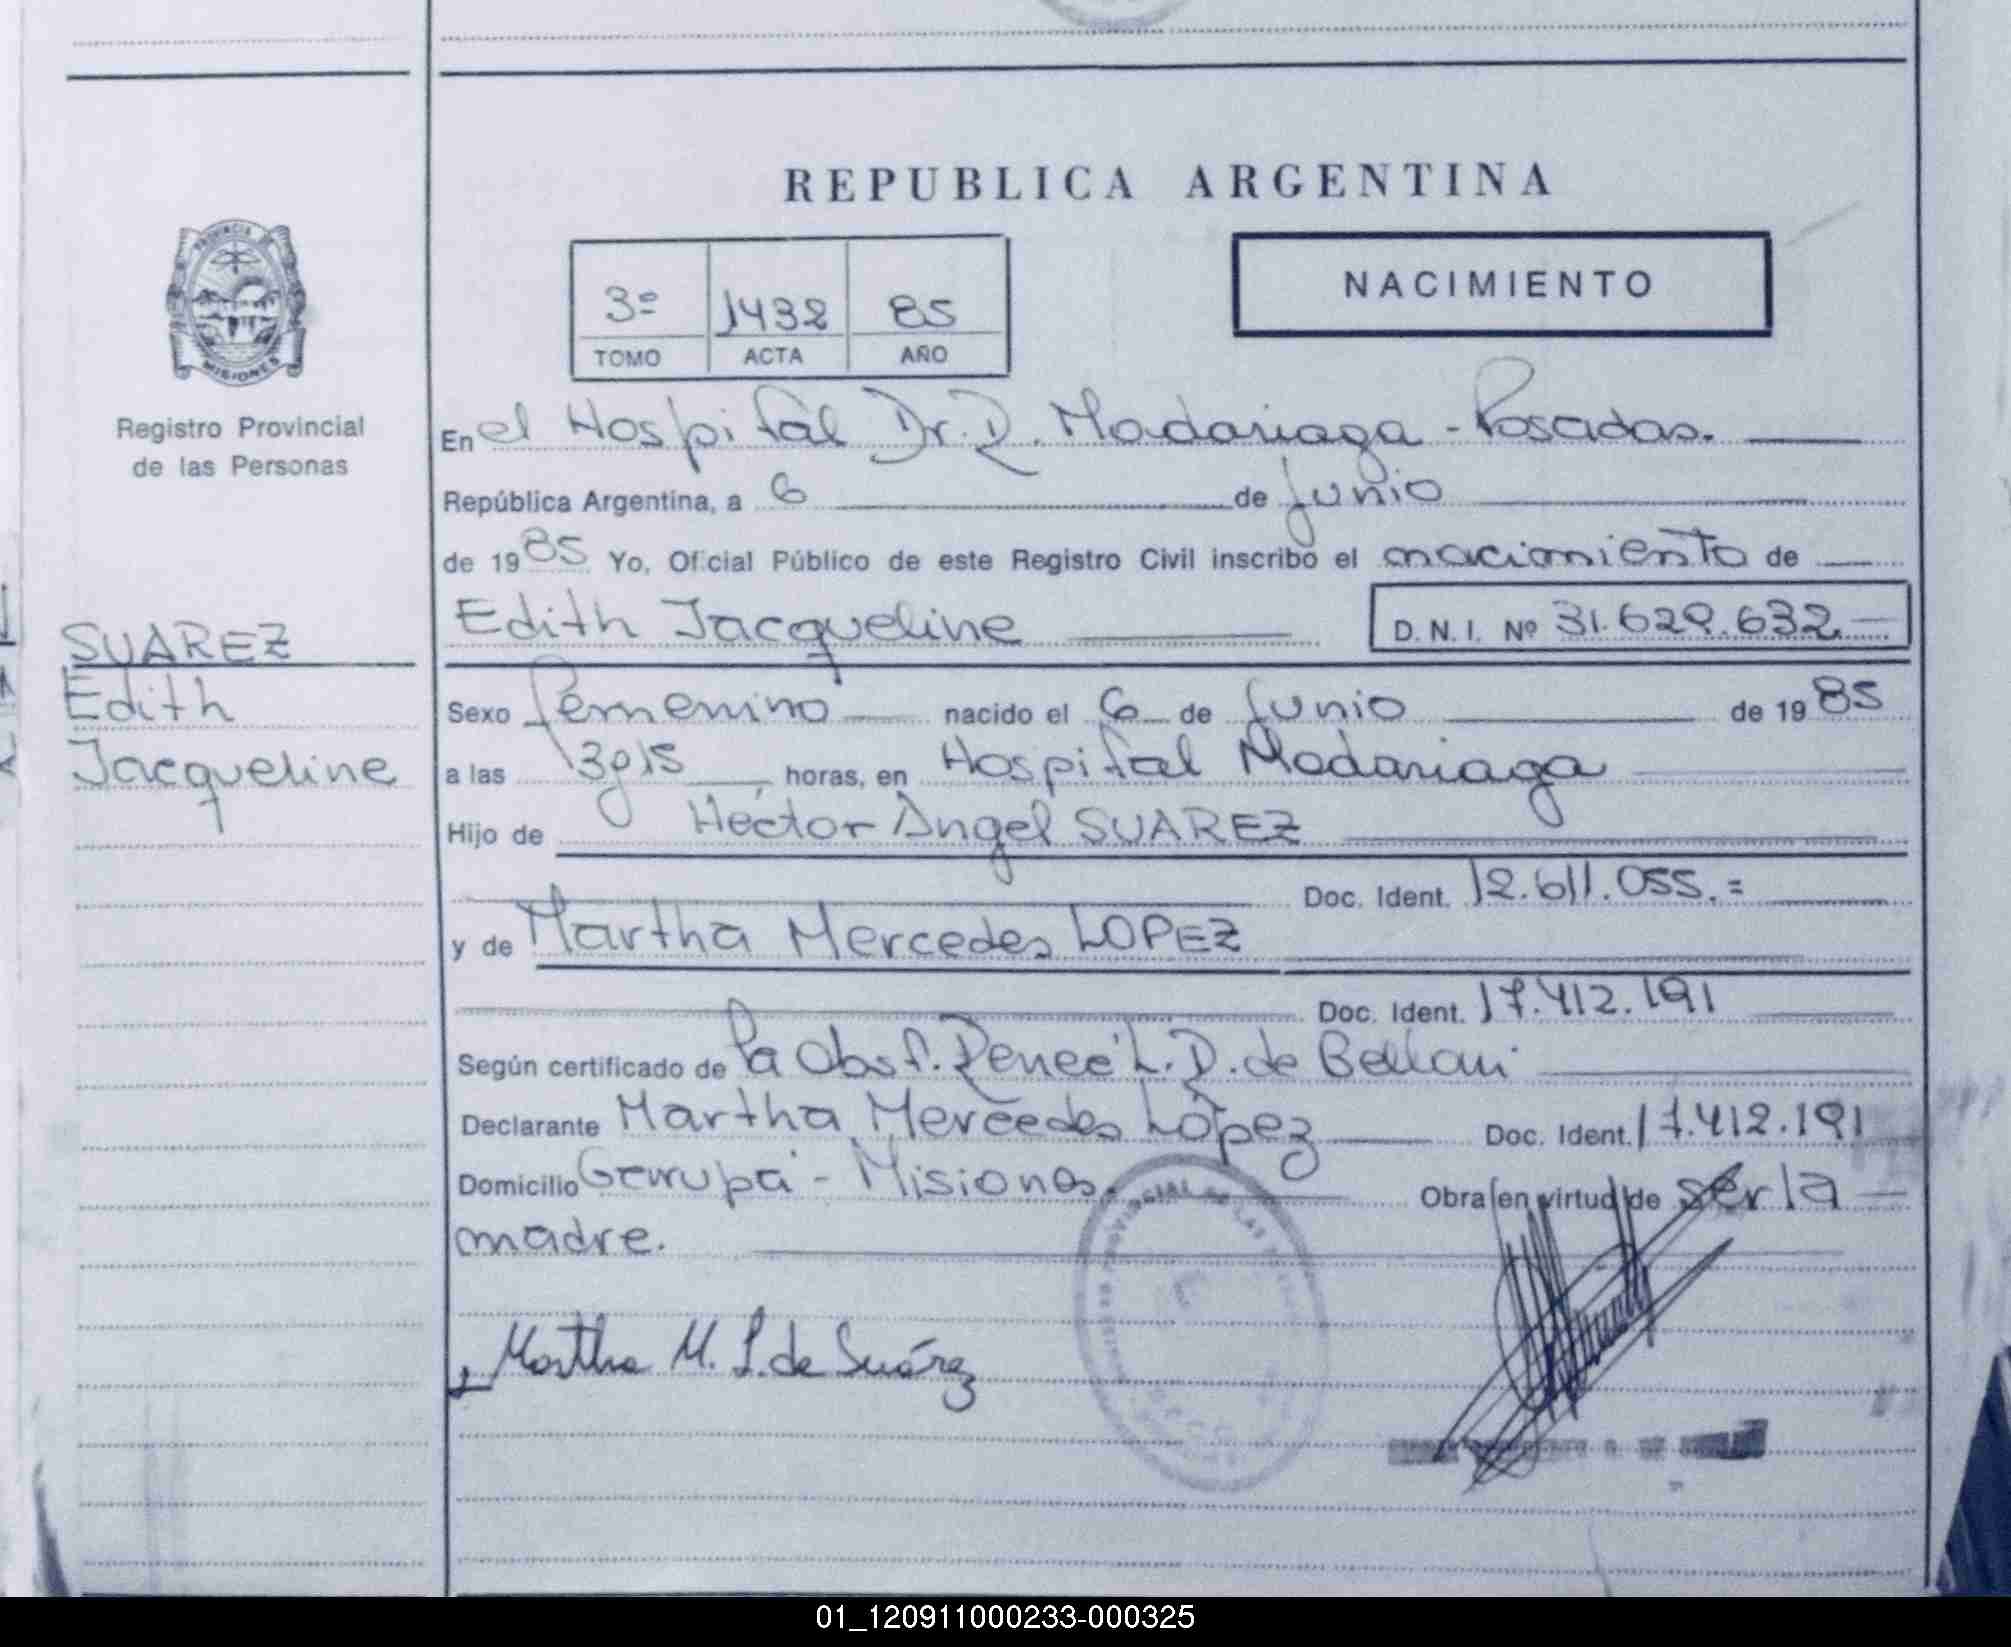 REPUBLICA ARGENTINA
PROVINCIA DE
MISIONES
Registro Provincial
de las Personas
SUAREZ
Edith
Jacqueline
3º 1432 85
TOMO ACTA AÑO
NACIMIENTO
En el Hospital Dr. R. Madariaga - Posadas.
República Argentina, a 6 de Junio
de 1985 Yo, Oficial Público de este Registro Civil inscribo el nacimiento de
Edith Jacqueline D.N.I. Nº 31.629.632
Sexo femenino nacido el 6 de Junio de 1985
a las 13y15 horas, en Hospital Madariaga
Hijo de Héctor Angel SUAREZ
Doc. Ident. 12.611.055.=
y de Martha Mercedes LOPEZ
Doc. Ident. 17.412.191
Según certificado de la Obst. Reneé L. R. de Bellani
Declarante Martha Mercedes López Doc. Ident. 17.412.191
Domicilio Garupá - Misiones. Obra en virtud de ser la
madre.
Martha M. L. de Suárez
01_120911000233-000325